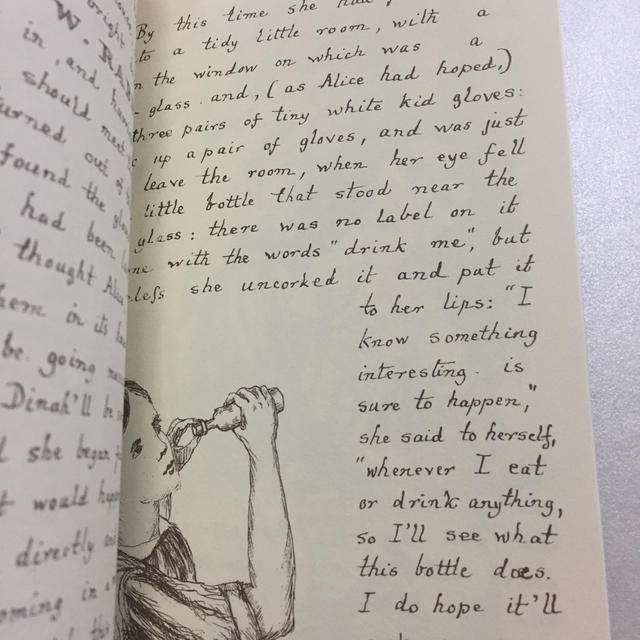 W. RA
in, and
should meet
turned out of
found the
had been
thought Alice
them in its
be going
Dinah'll be
she began
it would
directly
coming in
By this time she had
to a tidy little room, with a
the window on which was a
glass and, (as Alice had hoped,)
three pairs of tiny white kid gloves:
up a pair of gloves, and was just
leave the room, when her eye fell
little bottle that stood near the
glass: there was no label on it
with the words "drink me", but
she uncorked it and put it
to her lips: "I
know something
interesting is
sure to happen,"
she said to herself,
"whenever I eat
or drink anything,
so I'll see what
this bottle does.
I do hope it'll